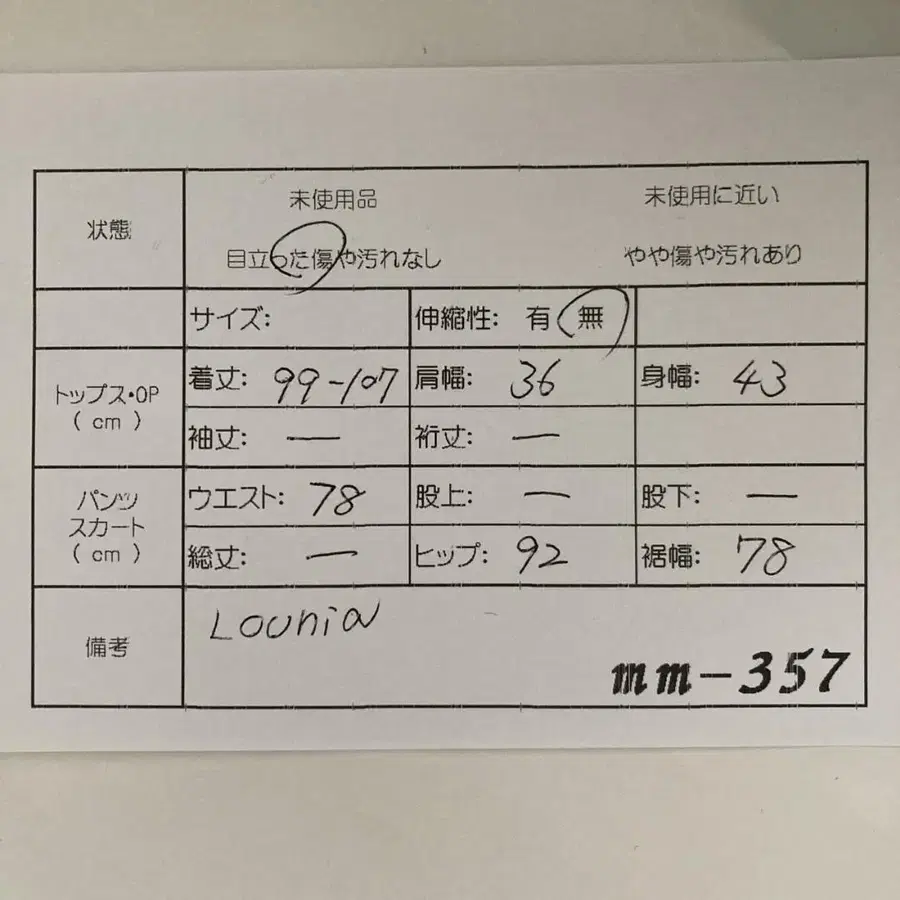 状態
未使用品 未使用に近い
目立った傷や汚れなし やや傷や汚れあり
サイズ: 伸縮性: 有 無
トップス・OP
( cm )
着丈: 99-107 肩幅: 36 身幅: 43
袖丈: — 裄丈: —
パンツ
スカート
( cm )
ウエスト: 78 股上: — 股下: —
総丈: — ヒップ: 92 裾幅: 78
備考
Lounia
mm-357